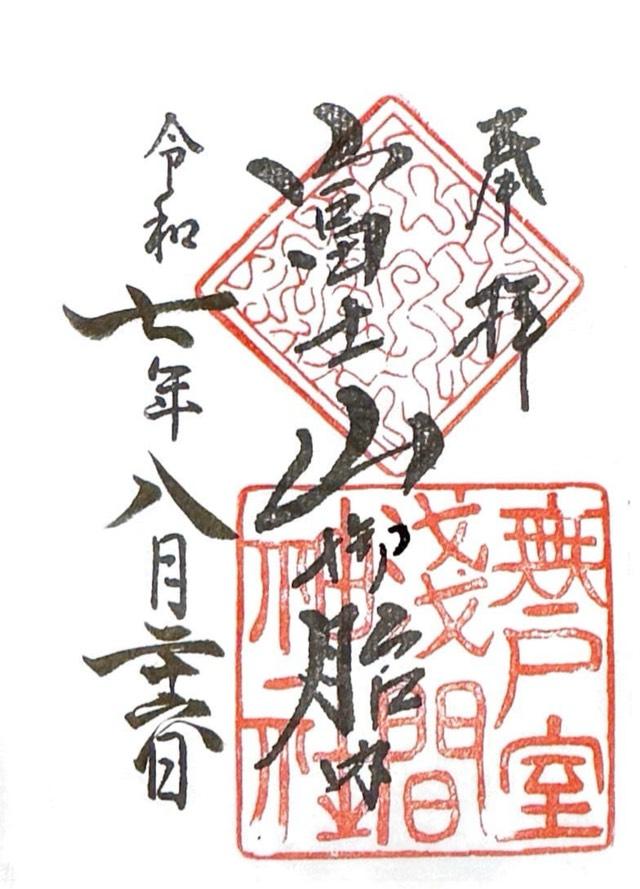 奉拝
富士山御胎内
無戸室
淺間
神社
令和七年八月二十六日